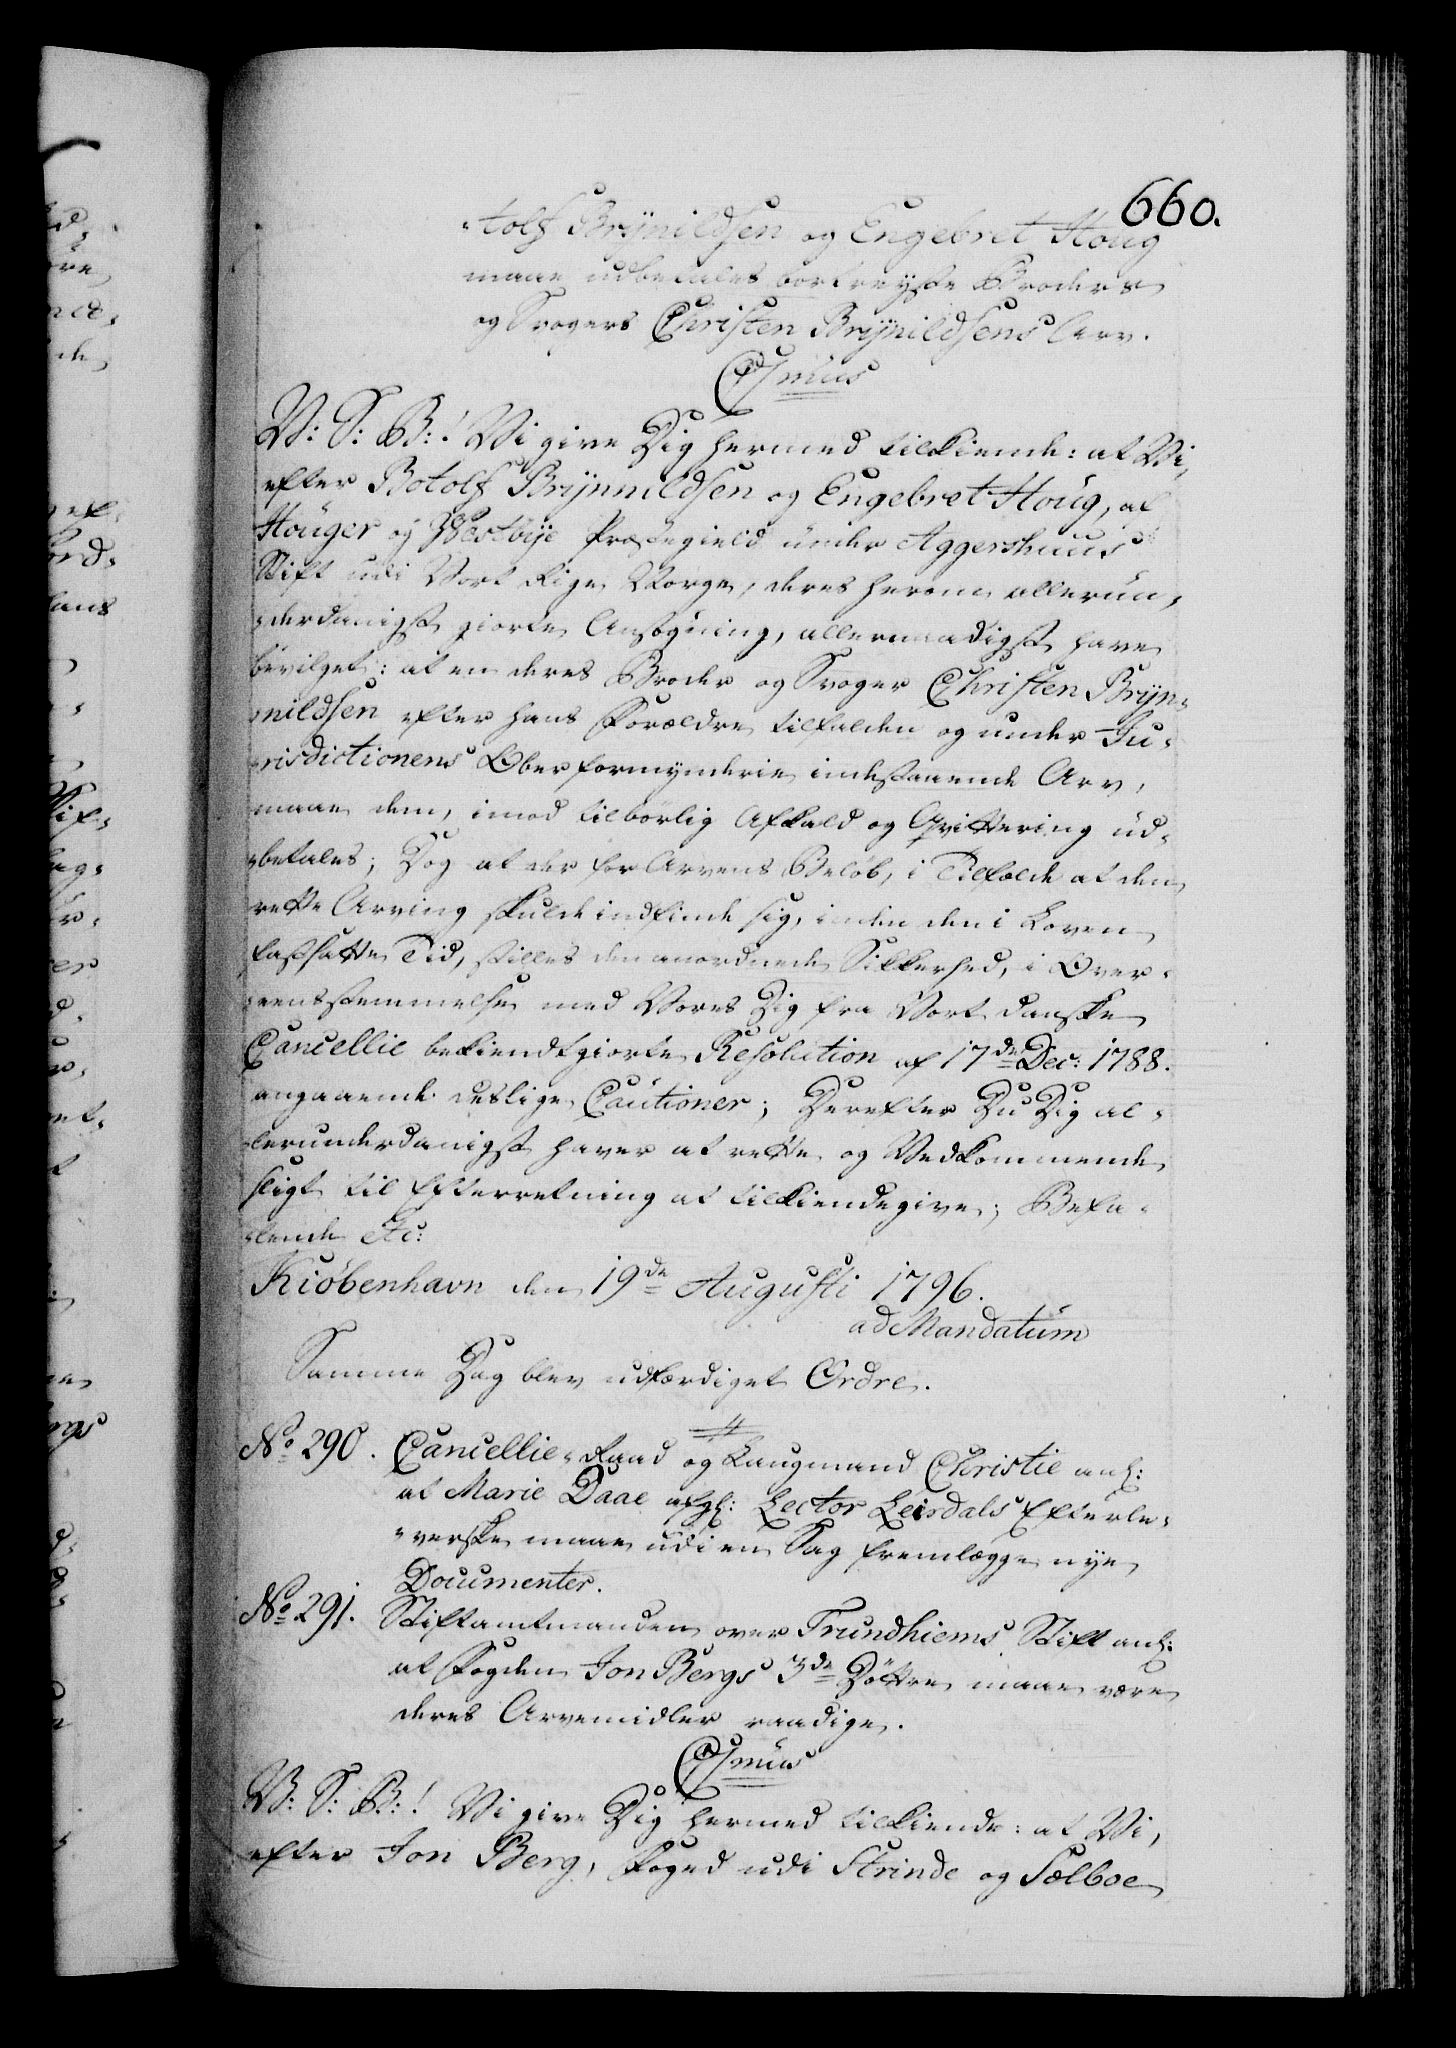 660.
-tolf Brÿnildsen og Engebret Houg
maae udbetales bortreyste Broders
og Svogers Christen Brÿnildsens Arv.
C7mus
V: S: B:! Vi give Dig hermed tilkiende: at Vi,
efter Botolf Brÿnnildsen og Engebret Houg, af
Houger og Westbÿe Præstegield under Aggershuus
Stift udi Vort Rige Norge, deres herom allerun-
-derdanigst giorte Ansøgning, allernaadigst have
bevilget: at en deres Broder og Svoger Christen Brÿn-
-nildsen efter hans Forældre tilfalden og under Ju-
-risdictionens Overformynderie indestaaende Arv,
maae dem, imod tilbørlig Afkald og Qvittering ud-
-betales; Dog at der for Arvens Beløb, i Tilfælde at den
rette Arving skulde indfinde sig, inden den i Loven
fastsatte Tid, stilles den anordnede Sikkerhed, i Over-
-eensstemmelse med Vores Dig fra Vort danske
Cancellie bekiendtgiorte Resolution af 17de Dec: 1788.
angaaende deslige Cautioner; Derefter Du Dig al-
-lerunderdanigst haver at rette og Vedkommende
sligt til Efterretning at tilkiendegive; Befa-
-lende etc:
Kiøbenhavn den 19de Augusti 1796.
ad Mandatum
Samme Dag blev udfærdiget Ordre.
No 290. Cancellie-Raad og Laugmand Christie anl:
at Marie Daae afgl: Lector Leirdals Efterle-
-verske maae udi en Sag fremlægge nye
Documenter.
No 291. Stiftamtmanden over Trundhiems Stift anl:
at Fogden Jon Bergs 3de Døttre maae være
deres Arvemidler raadige.
C7mus
V: S: B:! Vi give Dig hermed tilkiende: at Vi,
efter Jon Berg, Foged udi Strinde og Sælboe